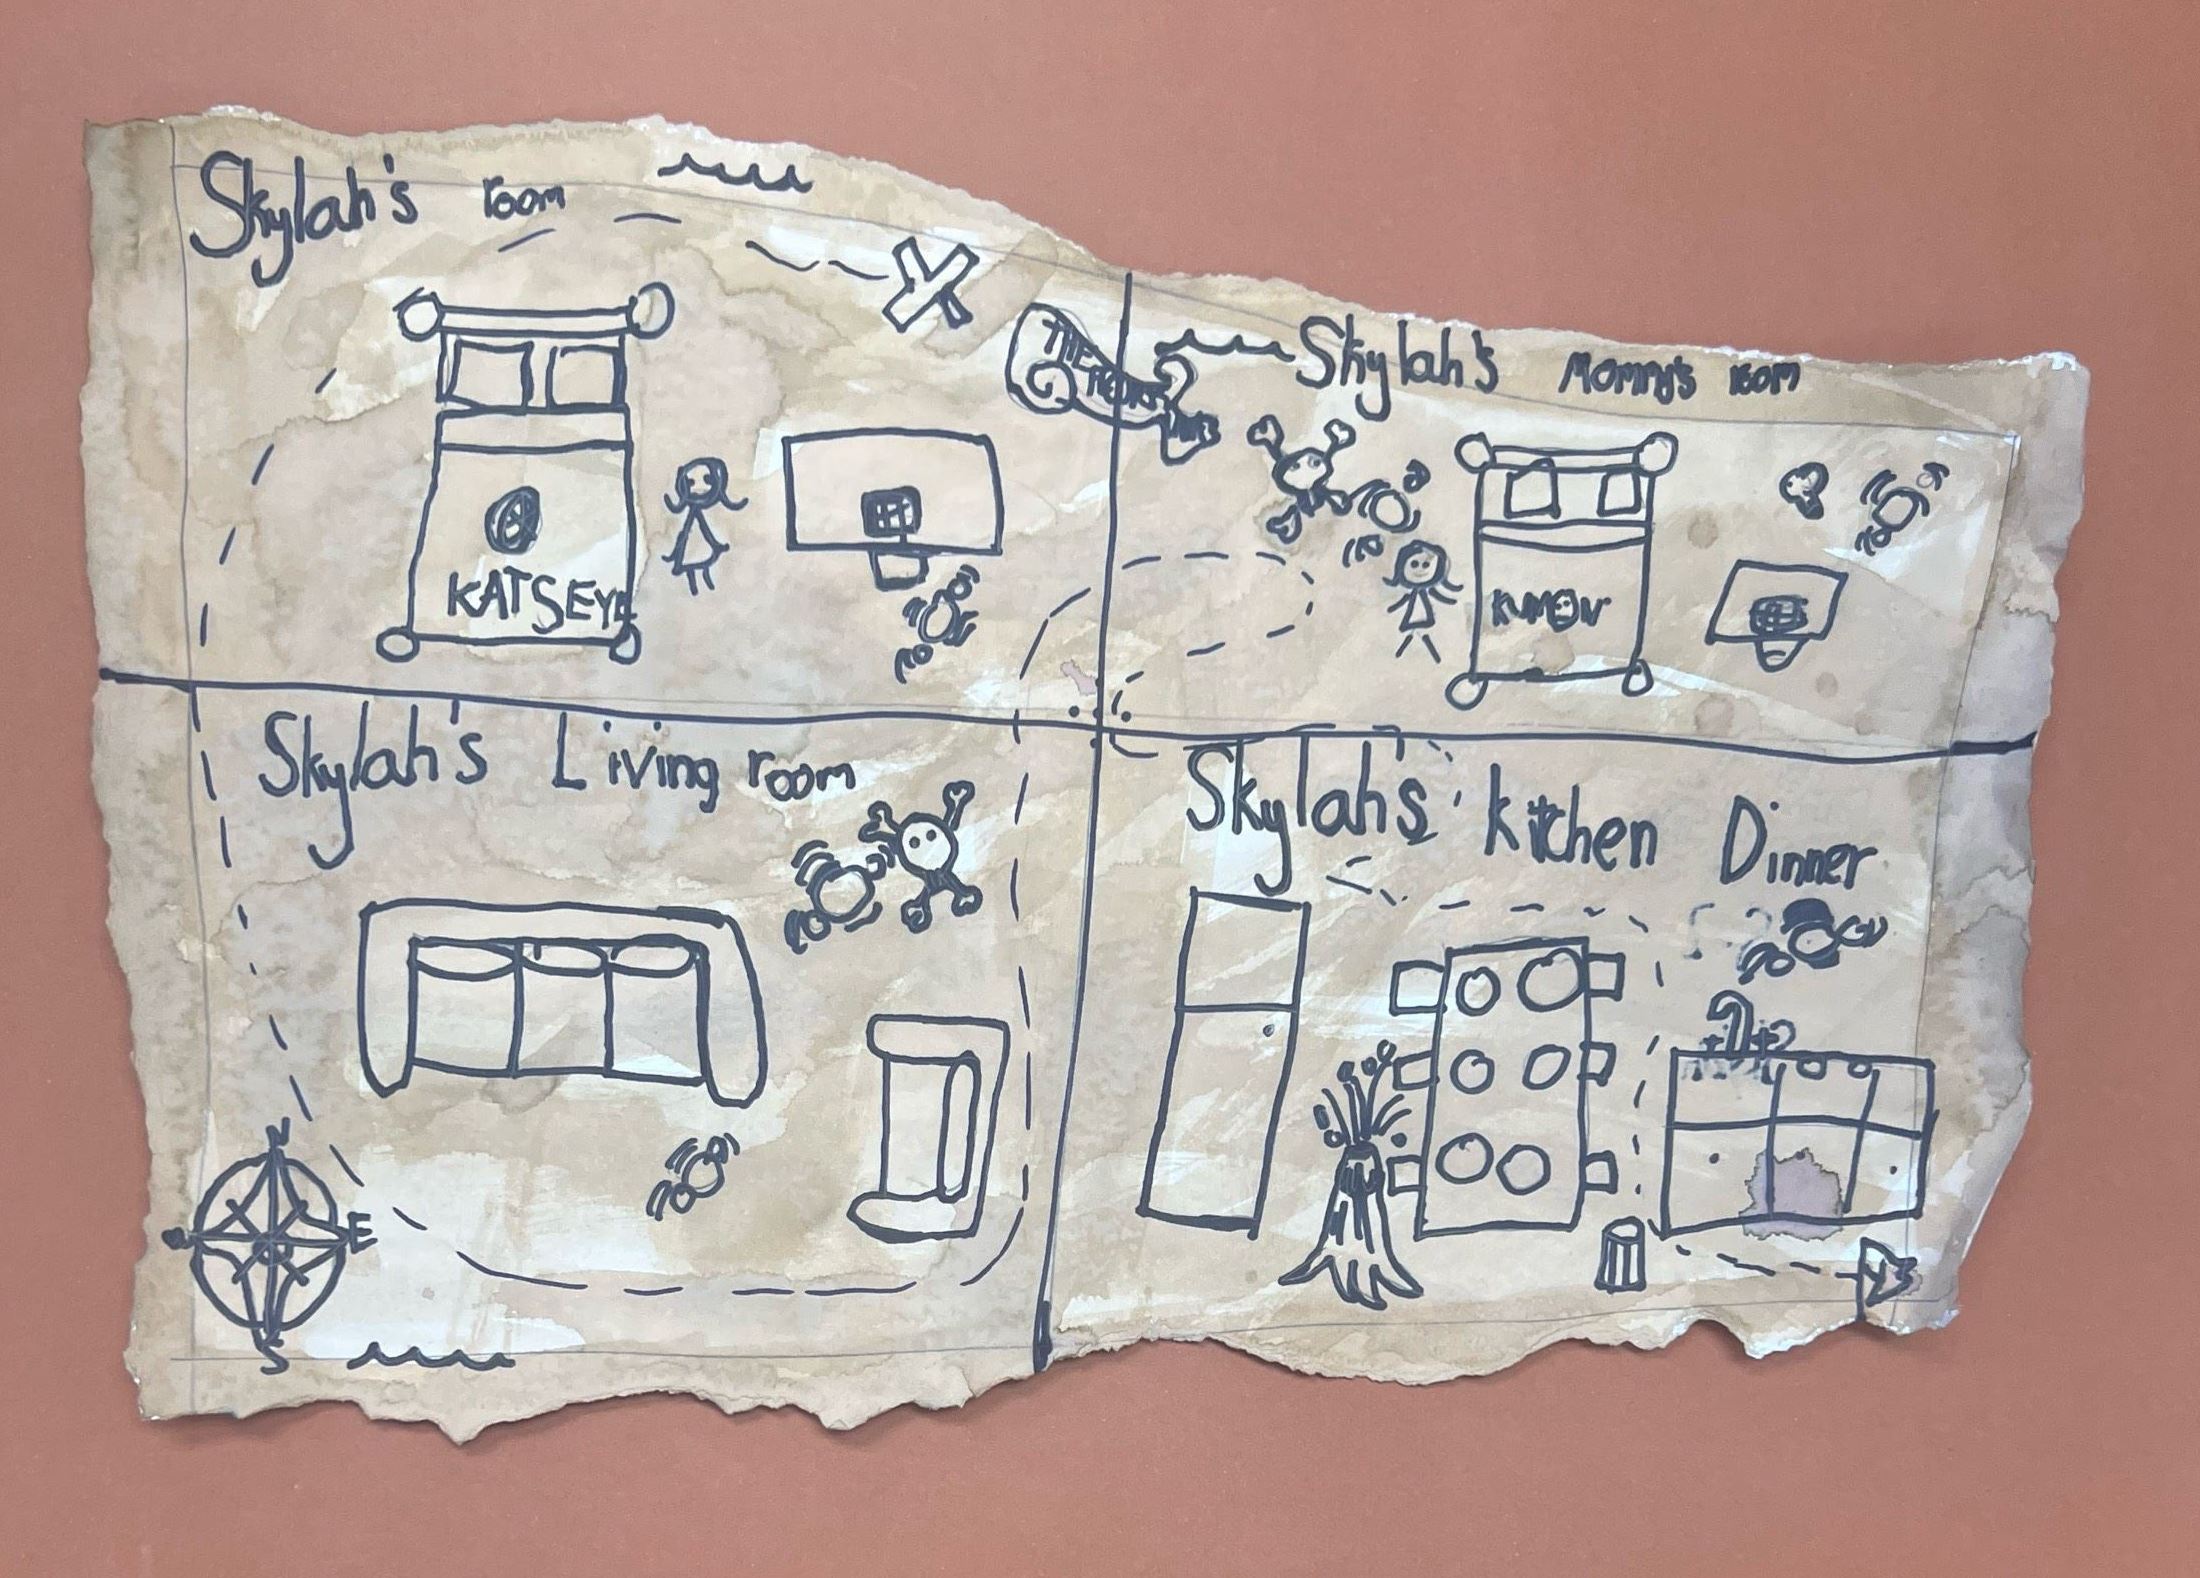 Skylah's room
KATSEYE
THE
Skylah's Mommy's room
KUMON
Skylah's Living room
N
E
S
Skylah's kitchen Dinner